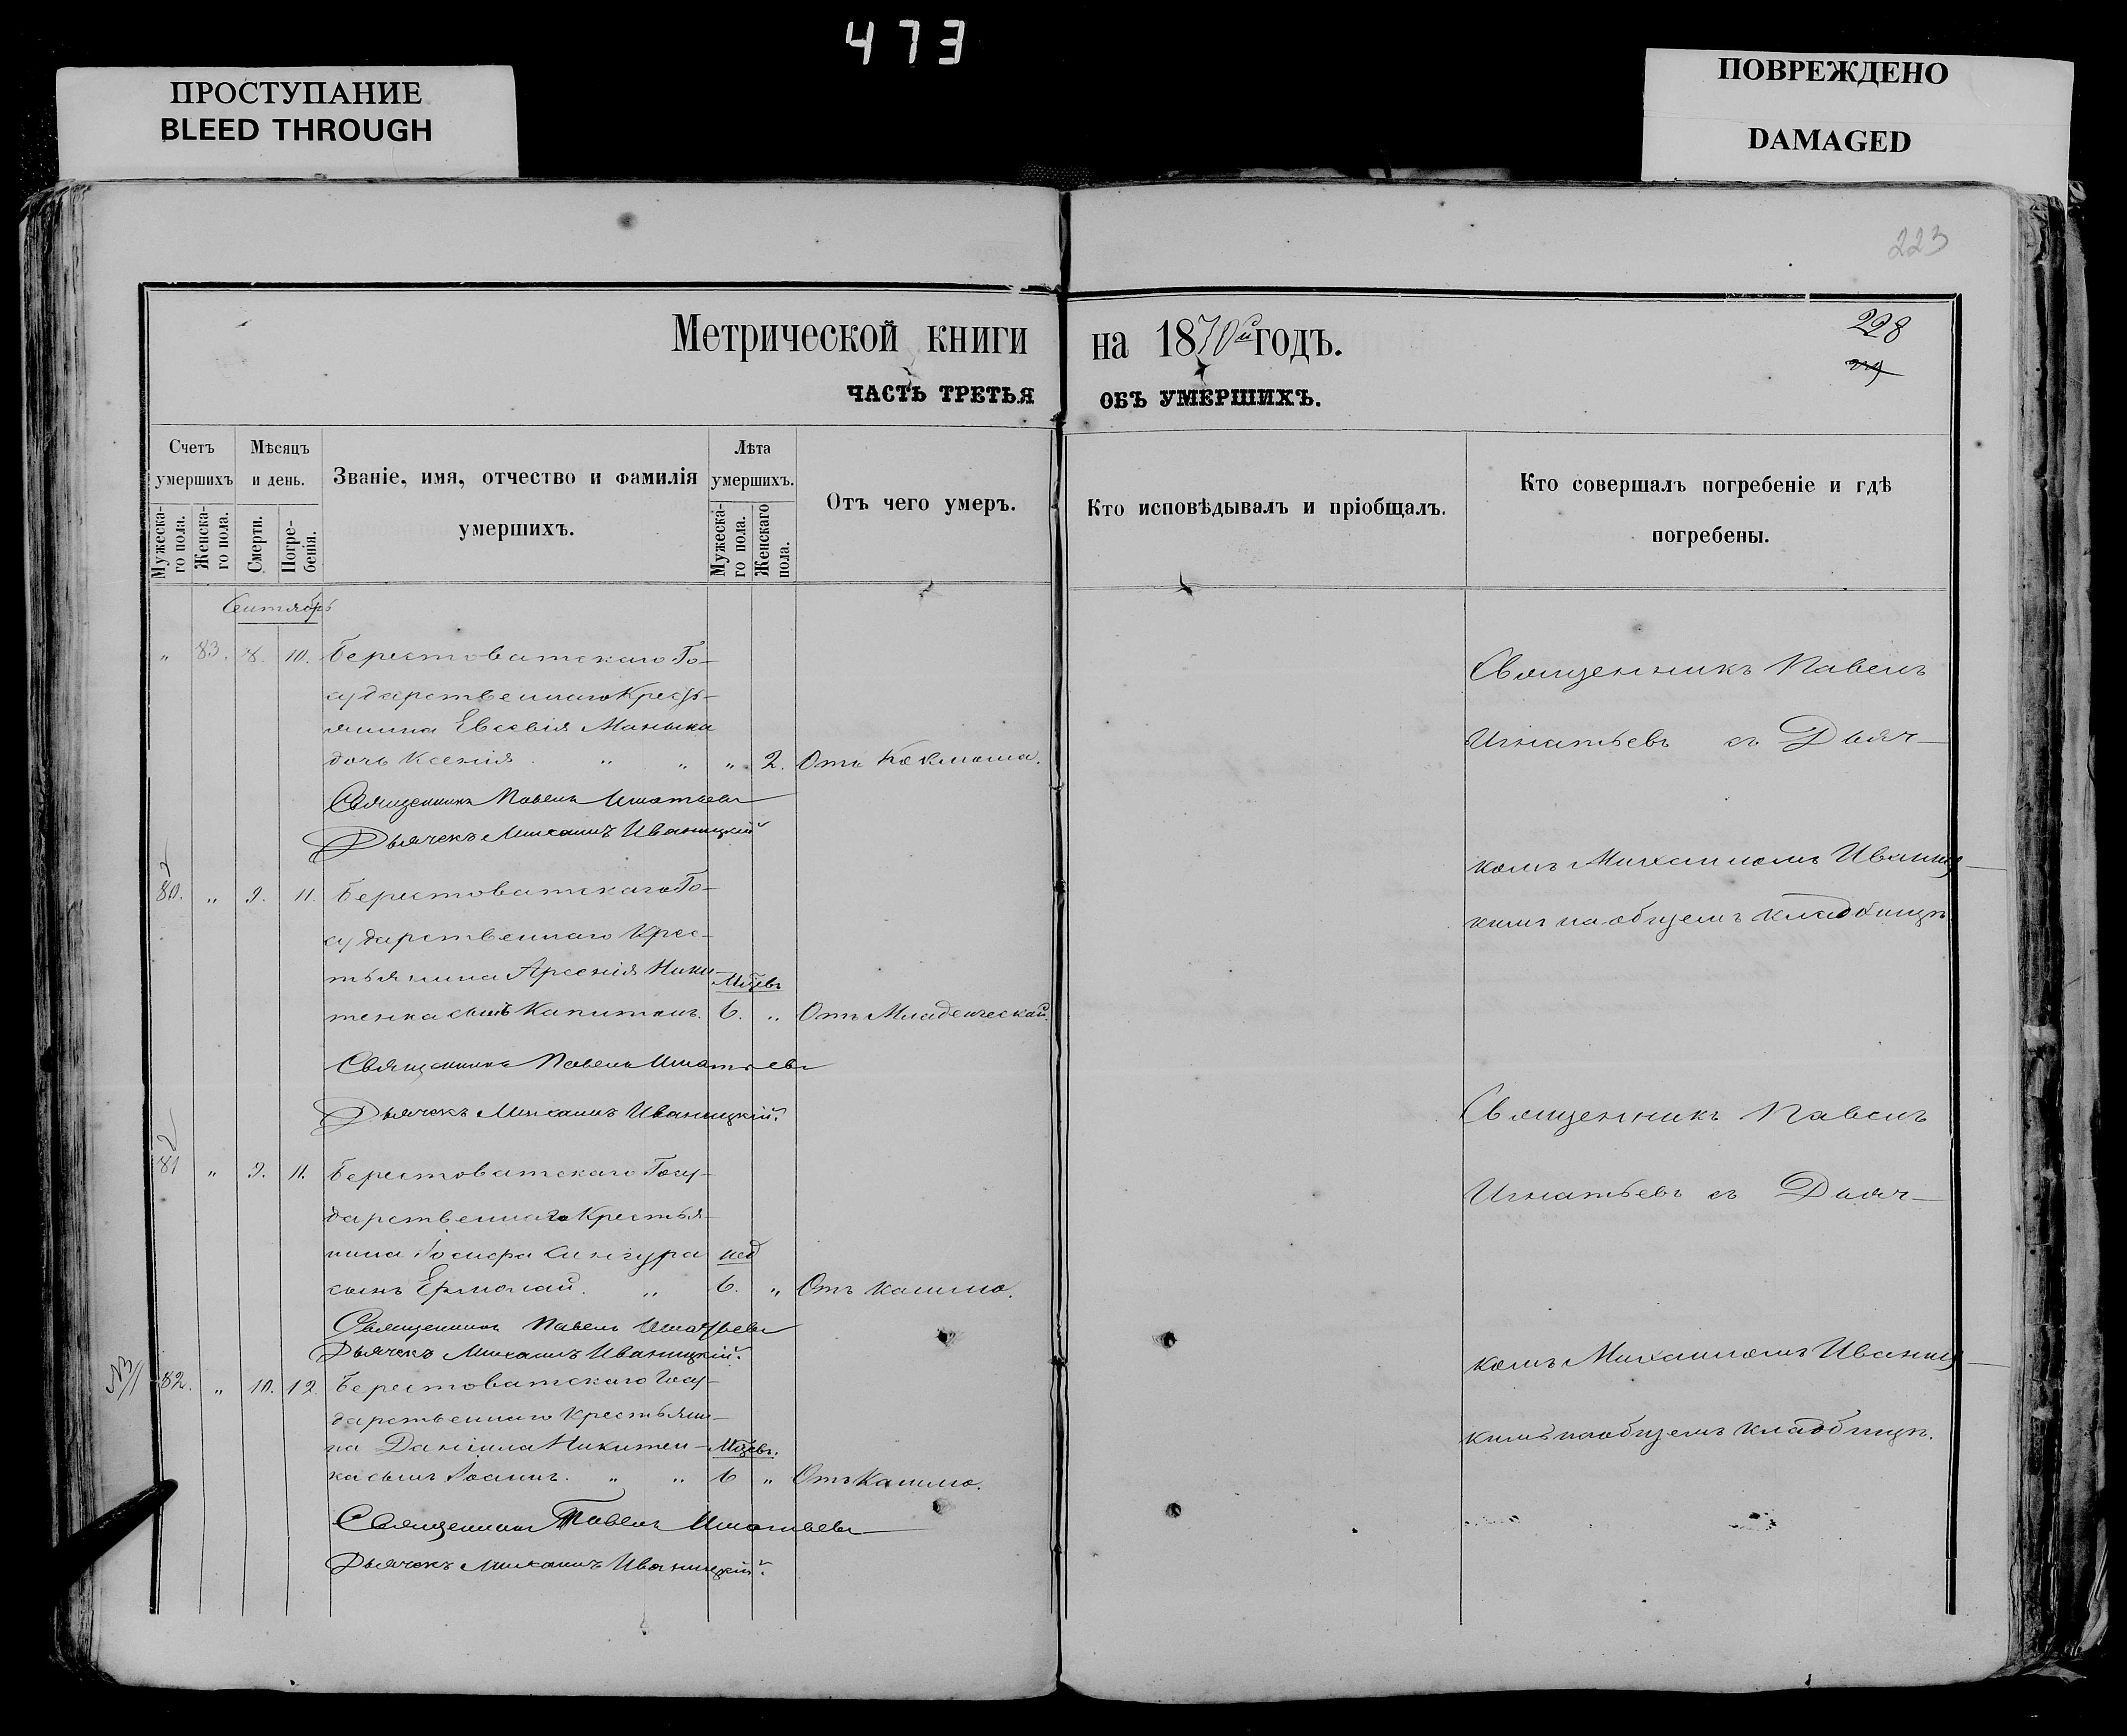 473
ПРОСТУПАНИЕ
BLEED THROUGH
ПОВРЕЖДЕНО
DAMAGED
223
Метрической книги на 1870й годъ.
228
ЧАСТЬ ТРЕТЬЯ ОБЪ УМЕРШИХЪ.
Счетъ умершихъ
Мужеска-го пола.
Женска-го пола.
Мѣсяцъ и день.
Смерти.
Погре-бенія.
Званіе, имя, отчество и фамилія умершихъ.
Лѣта умершихъ.
Мужеска-го пола.
Женскаго пола.
Отъ чего умеръ.
Кто исповѣдывалъ и пріобщалъ.
Кто совершалъ погребеніе и гдѣ погребены.
Сентябрь
" 83. 8. 10. Берестоватскаго Го-
сударственнаго Кресть-
янина Евсевія
дочь Ксенія. " " " 2. Отъ Коклюша.
Священникъ Павелъ Игнатьевъ
Дьячекъ Михаилъ Иваницкій
Священникъ Павелъ
Игнатьевъ съ Дьяч-
комъ Михаиломъ Иваниц-
кимъ на общемъ кладбищѣ
80. " 9. 11. Берестоватскаго Го-
сударственнаго Крес-
тьянина Арсенія Ники- Мцевъ
тенка сынъ Капитонъ. 6. " Отъ Младенческой.
Священникъ Павелъ Игнатьевъ
Дьячекъ Михаилъ Иваницкій.
81 " 9. 11. Берестоватскаго Госу-
дарственнаго Крестья-
нина Іосифа Сингура нед
сынъ Ермолай. " 6. " Отъ кашлю.
Священникъ Павелъ Игнатьевъ
Дьячекъ Михаилъ Иваницкій.
Священникъ Павелъ
Игнатьевъ съ Дьяч-
комъ Михаиломъ Иваниц-
кимъ на общемъ кладбищѣ.
82. " 10. 12. Берестоватскаго Госу-
дарственнаго Крестьяни-
на Даніила Никитен- Мцевъ.
ка сынъ Іоаннъ. " " 6 " Отъ Кашлю.
Священникъ Павелъ Игнатьевъ
Дьячекъ Михаилъ Иваницкій.